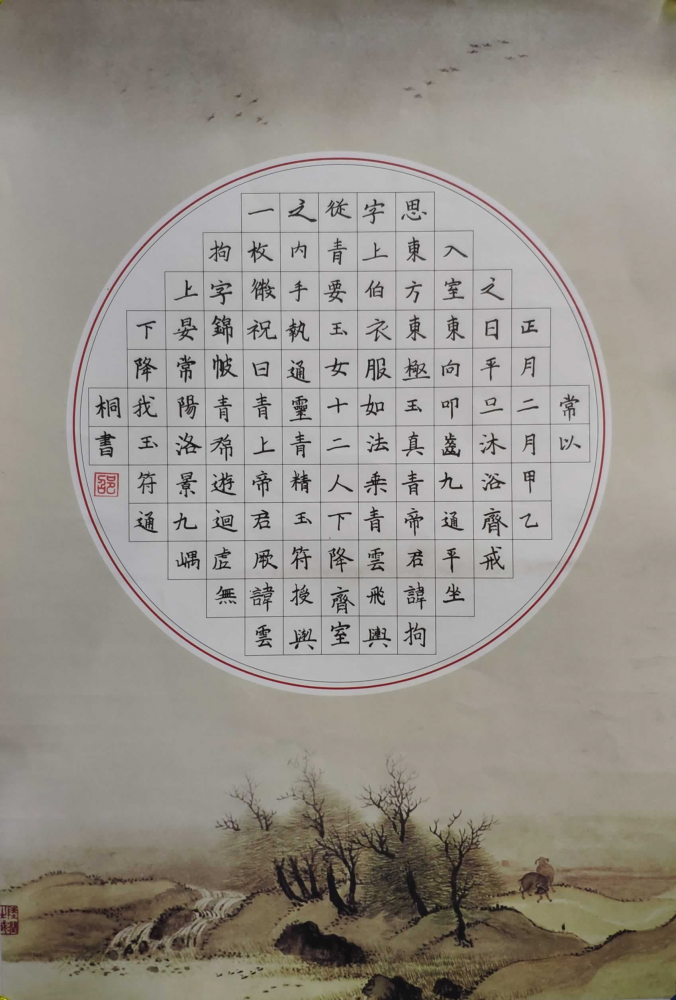 常以
正月二月甲乙
之日平旦沐浴齊戒
入室東向叩齒九通平坐
思東方東極玉真青帝君諱拘
字上伯衣服如法乘青雲飛輿
從青要玉女十二人下降齊室
之內手執通靈青精玉符授與
一枚微祝曰青上帝君厥諱雲
拘字錦帔青帬遊迴虛無
上晏常陽洛景九嵎
下降我玉符通
桐書